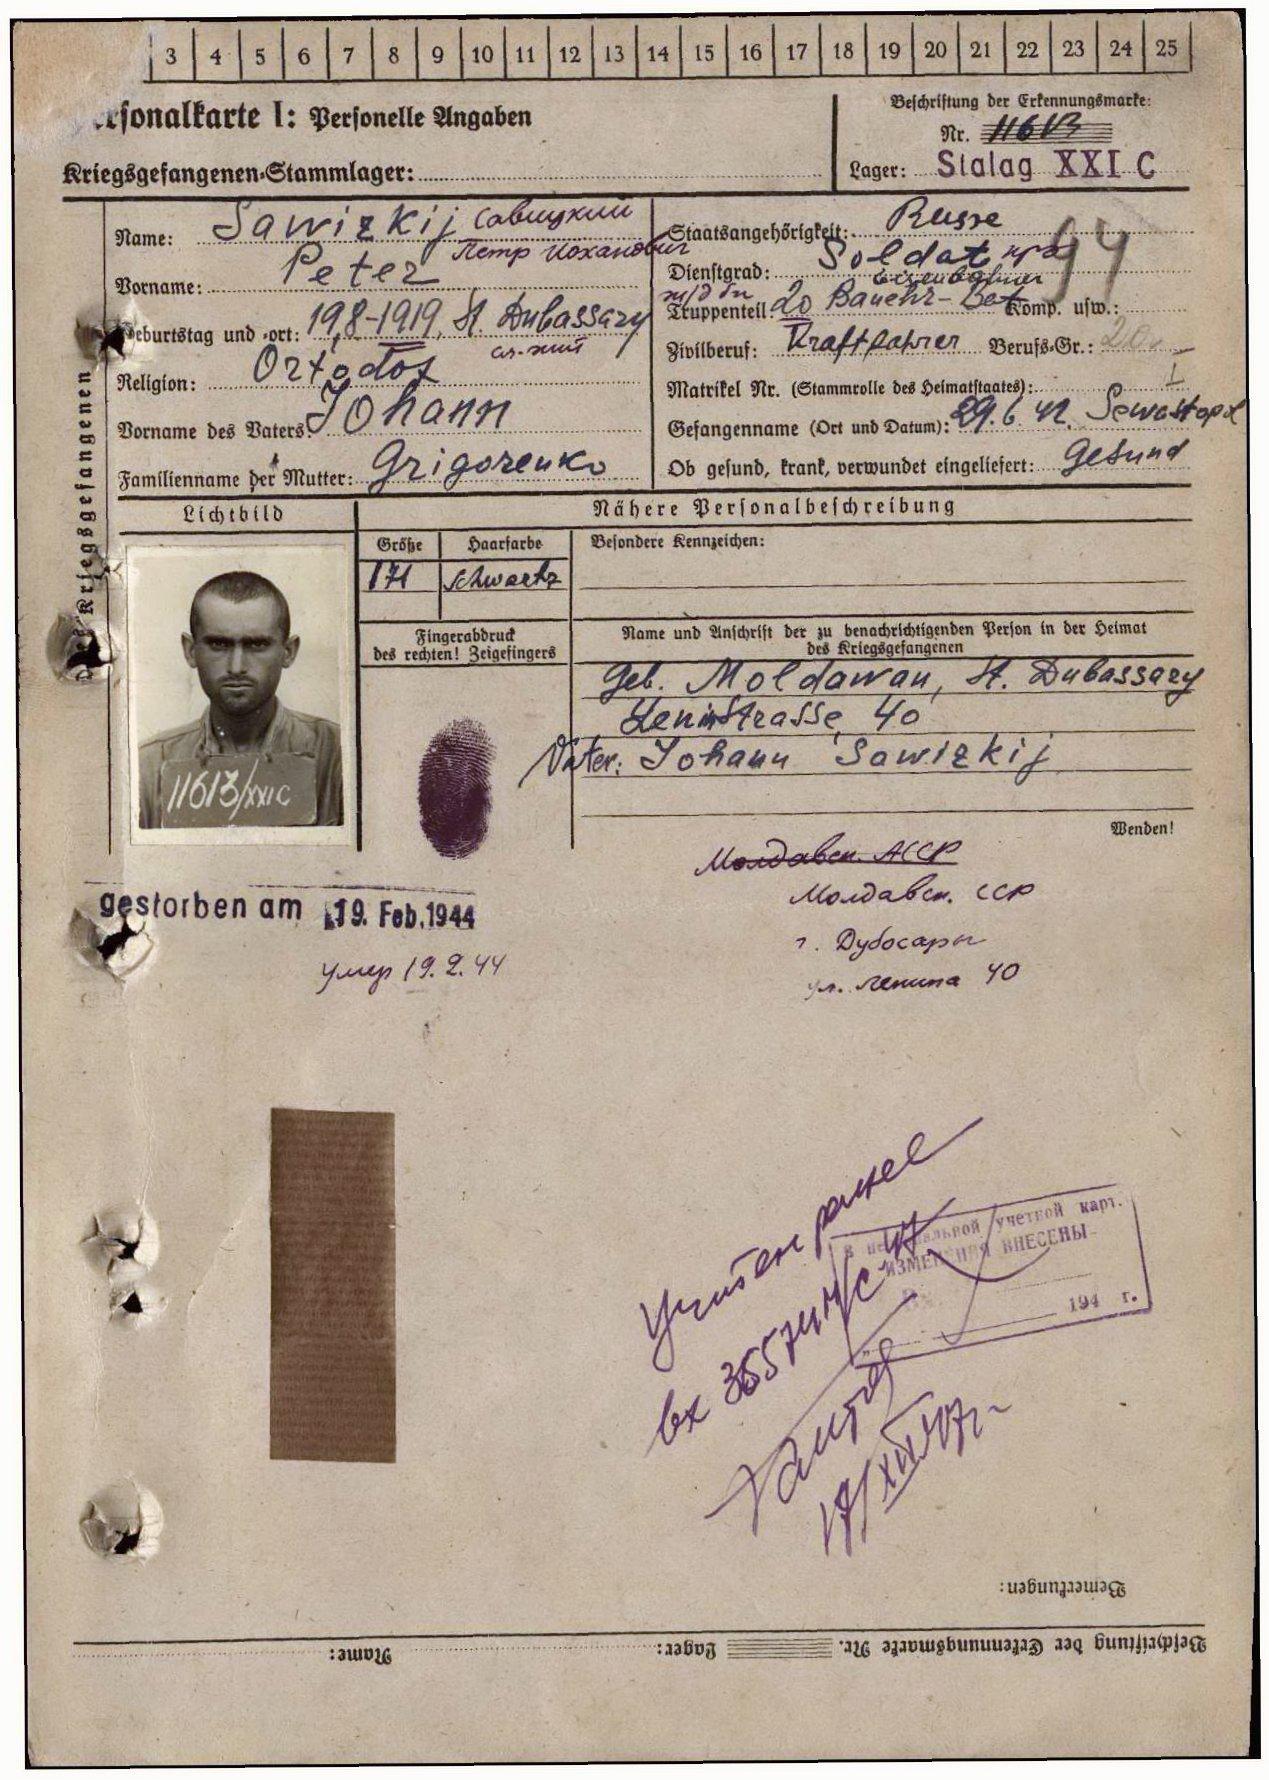 3 4 5 6 7 8 9 10 11 12 13 14 15 16 17 18 19 20 21 22 23 24 25
ersonalkarte I: Personelle Angaben
Kriegsgefangenen-Stammlager:
Beschriftung der Erkennungsmarke:
Nr. 11613
Lager: Stalag XXI C
des Kriegsgefangenen
Name: Sawizkij Савицкий
Петр Иоханович
Vorname: Peter
Geburtstag und -ort: 19,8-1919, St. Dubassary
Religion: Ortodox
Vorname des Vaters: Johann
Familienname der Mutter: Grigorenko
Staatsangehörigkeit: Russe
Dienstgrad: Soldat
94
Eisenbahner
ж/д бн
Truppenteil 20 Komp. usw.:
Zivilberuf: Kraftfahrer Berufs-Gr.: 20
Matrikel Nr. (Stammrolle des Heimatstaates):
Gefangenname (Ort und Datum): 29.6.42. Sewastopol
Ob gesund, krank, verwundet eingeliefert: Gesund
Lichtbild
11613/XXIC
Nähere Personalbeschreibung
Größe Haarfarbe Besondere Kennzeichen:
171 schwartz
Fingerabdruck
des rechten! Zeigefingers
Name und Anschrift der zu benachrichtigenden Person in der Heimat
des Kriegsgefangenen
Geb. Moldawan, St. Dubassary
Leninstrasse 40
Vater: Johann Sawizkij
Wenden!
gestorben am 19. Feb. 1944
умер 19.2.44
Молдавск. АССР
Молдавск. ССР
г. Дубосары
ул. Ленина 40
Учтен ранее
вх
В персональной учетной карт.
ИЗМЕНЕНИЯ ВНЕСЕНЫ
Вх.
194 г.
17/XII 47г.
Bemerkungen:
Beschriftung der Erkennungsmarke Nr. Lager: Name: